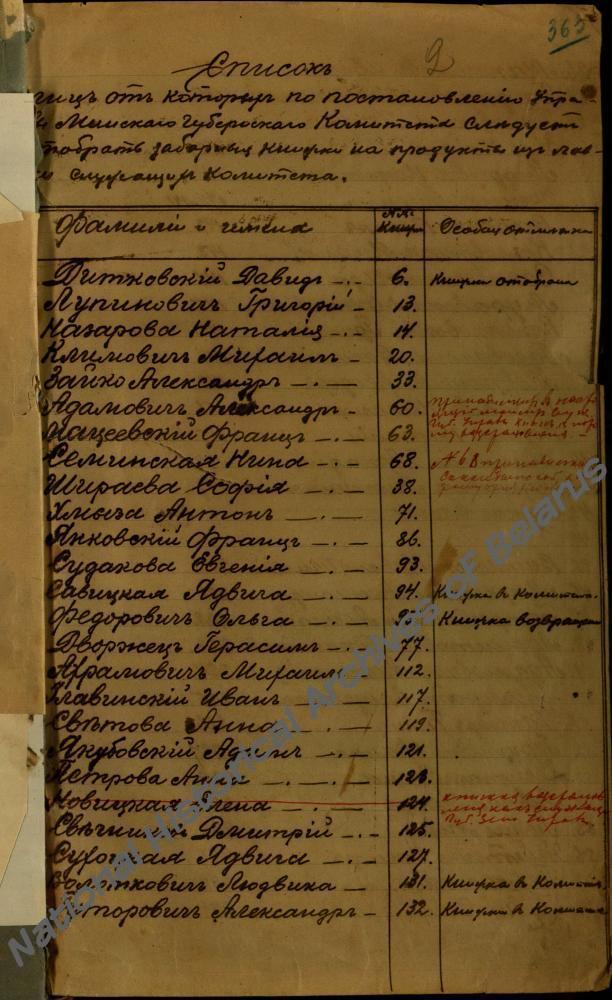 363
Списокъ
9
лицъ отъ которыхъ по постановленію Упра-
Минскаго Губернскаго Комитета слѣдуетъ
отобрать заборныя книжки на продукты изъ лав-
служащимъ Комитета.
Фамилія и имена №№ Книж. Особая отмѣтка
Витковскій Давидъ 6. Книжка отобрана
Лупиновичъ Григорій 13.
Назарова Наталія 14.
Климовичъ Михаилъ 20.
Зайко Александръ 33.
Адамовичъ Александръ 60.
Мацеевскій Францъ 63.
Семинская Нина 68. № 68
Шираева Софія 38.
Хмыза Антонъ 71.
Янковскій Францъ 86.
Судакова Евгенія 93.
Савицкая Ядвига 94. Книжка въ Комитетѣ.
Федоровичъ Ольга Книжка возвращена
Дворжецъ Герасимъ 77.
Абрамовичъ Михаилъ 112.
Главинскій Иванъ 117.
Свѣтова Анна 119.
Якубовскій Адамъ 121.
Петрова Анна 123.
Новицкая Елена 124. книжка
Дмитрій 125.
Ядвига 127.
Людвика 131. Книжка въ Комит.
Александръ 132. Книжка въ Комитетѣ
National Historical Archives of Belarus